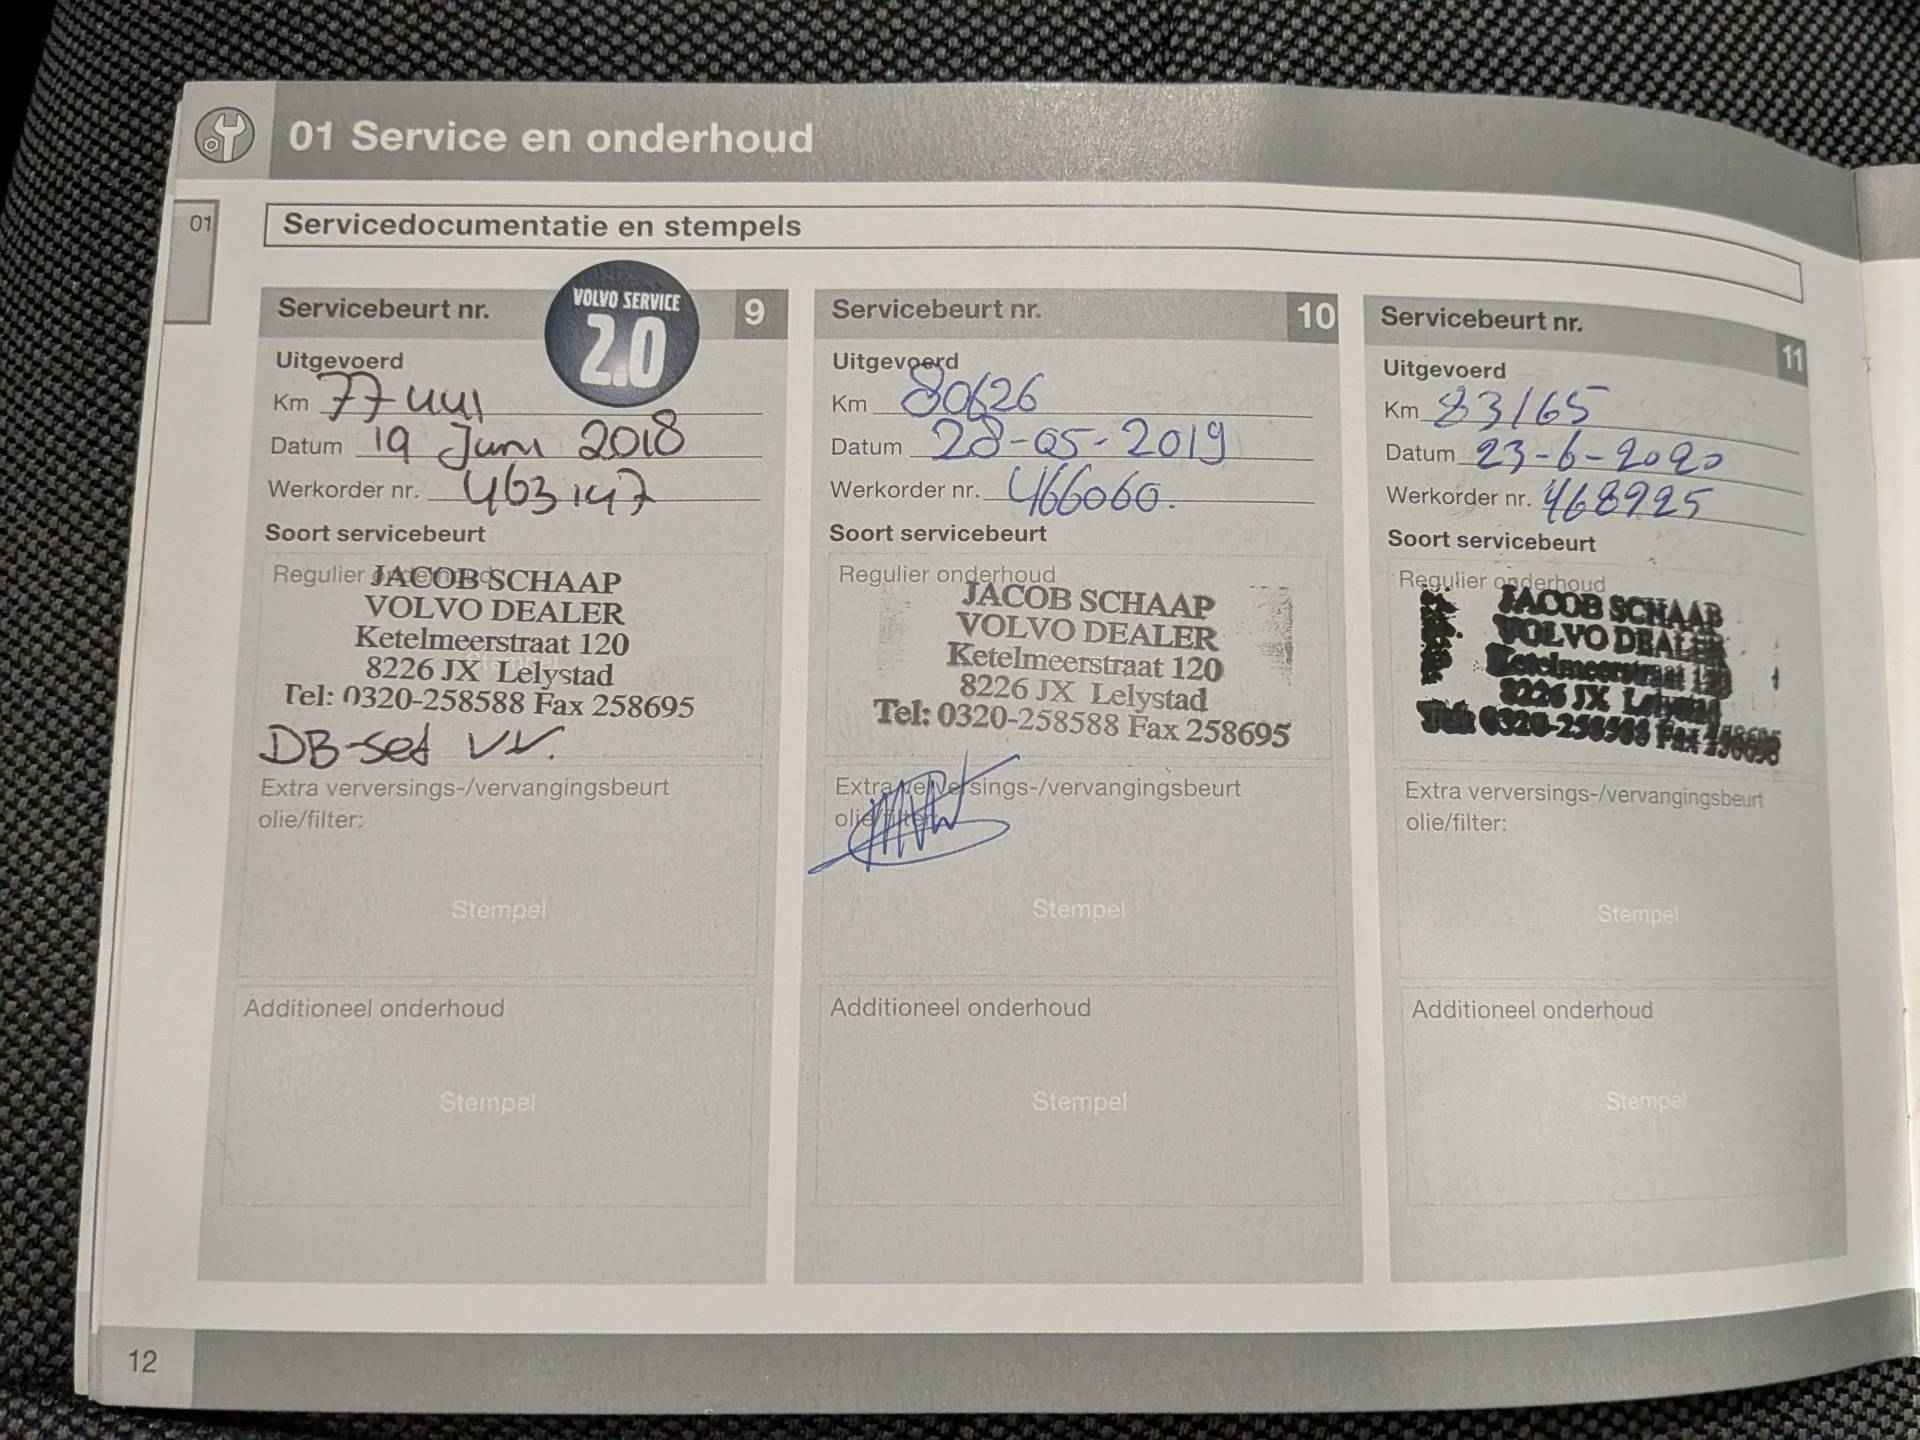 01 Service en onderhoud
01
Servicedocumentatie en stempels
Servicebeurt nr. 9
VOLVO SERVICE
2.0
Uitgevoerd
Km 77441
Datum 19 Juni 2018
Werkorder nr. 463147
Soort servicebeurt
Regulier onderhoud
JACOB SCHAAP
VOLVO DEALER
Ketelmeerstraat 120
8226 JX Lelystad
Tel: 0320-258588 Fax 258695
DB-set VV.
Extra verversings-/vervangingsbeurt
olie/filter:
Stempel
Additioneel onderhoud
Stempel
Servicebeurt nr. 10
Uitgevoerd
Km 80626
Datum 28-05-2019
Werkorder nr. 466060.
Soort servicebeurt
Regulier onderhoud
JACOB SCHAAP
VOLVO DEALER
Ketelmeerstraat 120
8226 JX Lelystad
Tel: 0320-258588 Fax 258695
Extra verversings-/vervangingsbeurt
olie/filter:
Stempel
Additioneel onderhoud
Stempel
Servicebeurt nr. 11
Uitgevoerd
Km 83165
Datum 23-6-2020
Werkorder nr. 468925
Soort servicebeurt
Regulier onderhoud
JACOB SCHAAP
VOLVO DEALER
Ketelmeerstraat 120
8226 JX Lelystad
Tel: 0320-258588 Fax 258695
Extra verversings-/vervangingsbeurt
olie/filter:
Stempel
Additioneel onderhoud
Stempel
12